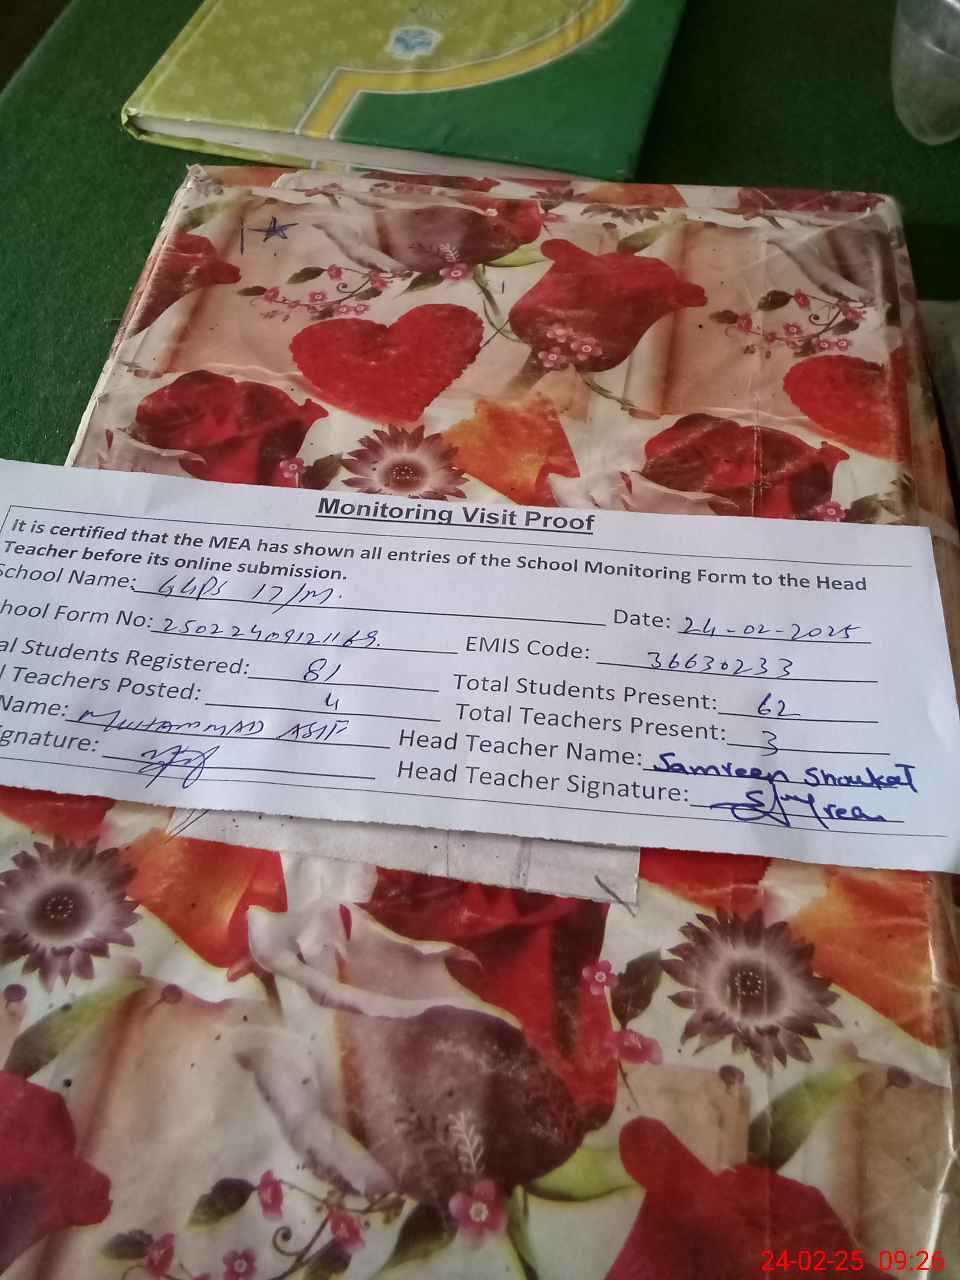 Monitoring Visit Proof
It is certified that the MEA has shown all entries of the School Monitoring Form to the Head
Teacher before its online submission.
School Name: GGPS 17/M. Date: 24-02-2025
hool Form No: EMIS Code: 36630233
al Students Registered: 81 Total Students Present: 62
l Teachers Posted: 4 Total Teachers Present: 3
Name: MUHAMMAD ASIF Head Teacher Name: Samreen Shoukat
gnature: Head Teacher Signature:
24-02-25 09:26